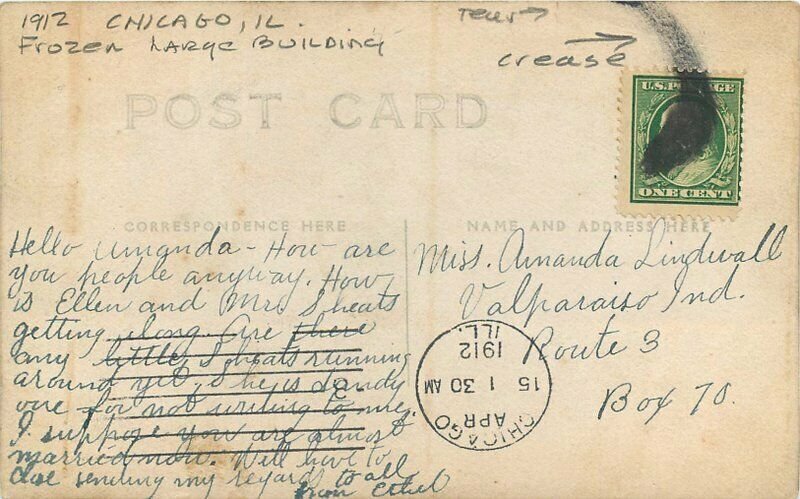 1912 CHICAGO, IL.
Frozen Large Building
tear
crease
POST CARD
U.S. POSTAGE
ONE CENT
CORRESPONDENCE HERE
NAME AND ADDRESS HERE
Hello Amanda - How are
you people anyway. How
is Ellen and Mrs Sheats
getting along. Are there
any little Sheats running
around yet, She is dandy
one for not writing to me.
I suppose you are almost
married now. Will have to
close sending my regards to all
from Ethel
Miss. Amanda Lindwall
Valparaiso Ind.
Route 3
Box 70.
CHICAGO
APR
15 1 30 AM
1912
ILL.